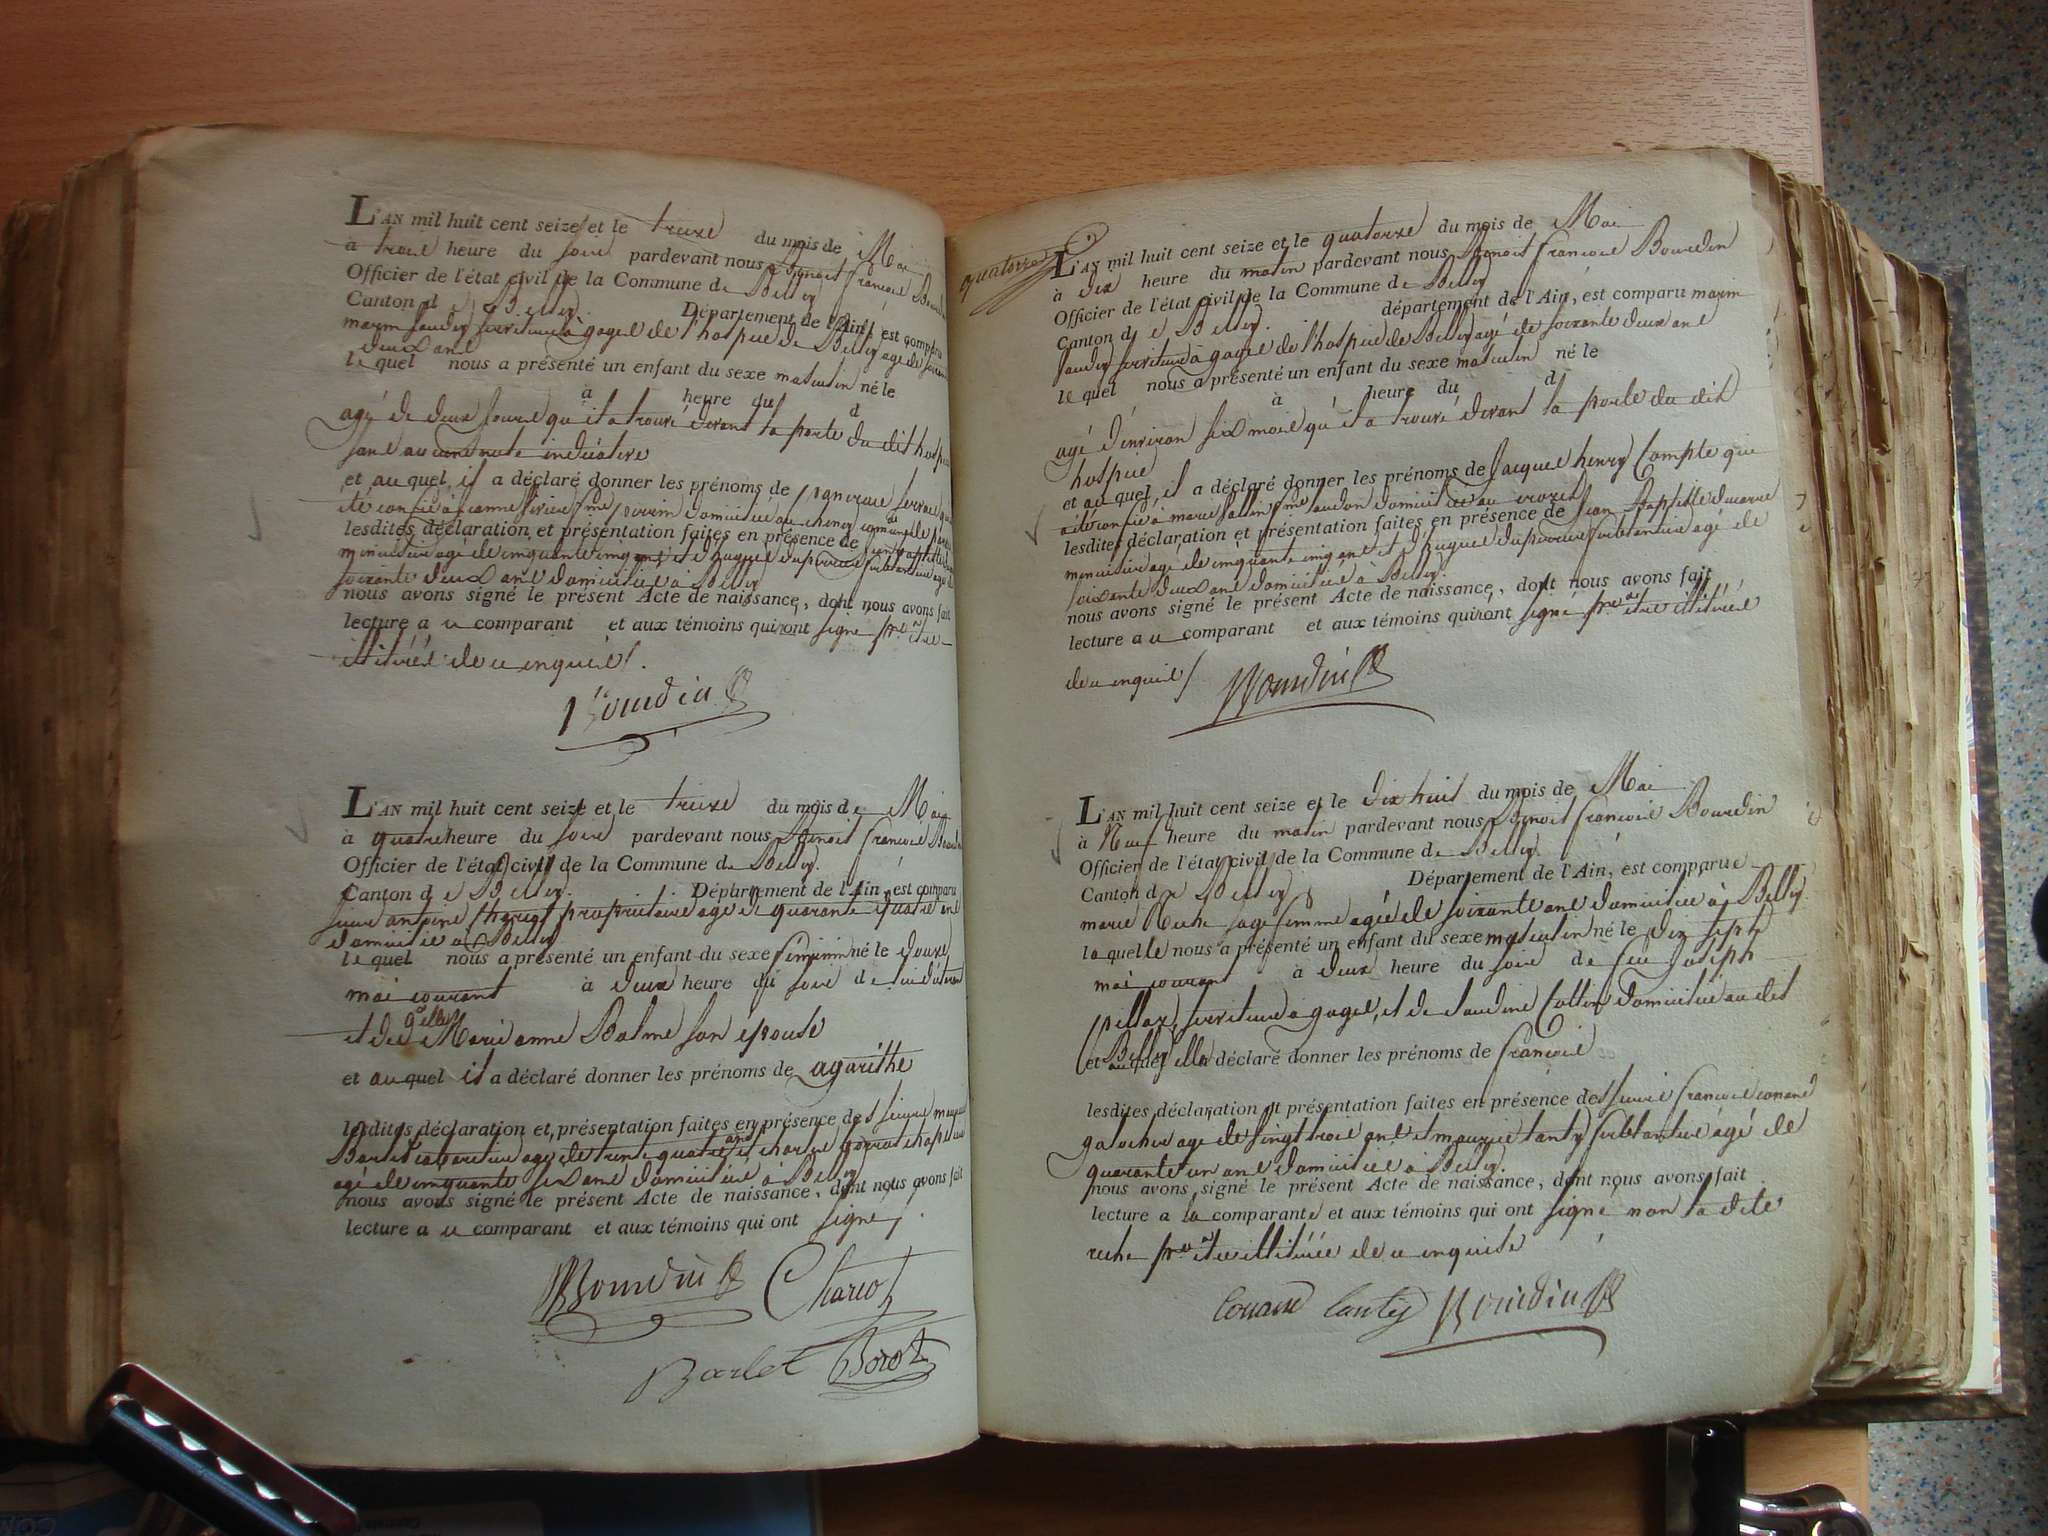 L'AN mil huit cent seize et le treize du mois de Mai
à trois heure du soir pardevant nous Benoit François Bourdin
Officier de l'état civil de la Commune de Belley
Canton de Belley. Département de l'Ain, est comparu
maxm serviteur à gages de l'hospice de Belley agé de soixante
deux ans
le quel nous a présenté un enfant du sexe masculin né le
à heure du d
agé de deux jours qu'il a trouvé devant la porte du dit hospice
sans aucune note indicative
et au quel, il a déclaré donner les prénoms de
été confié à domicilié au
lesdites déclaration et présentation faites en présence de jean baptiste
menuisier agé de cinquante cinq ans et d'hugues agé de
soixante deux ans domiciliés à Belley
nous avons signé le présent Acte de naissance, dont nous avons fait
lecture a u comparant et aux témoins qui ont signé être
illitérés de ce enquis/.
Bourdin
L'AN mil huit cent seize et le treize du mois de Mai
à quatre heure du soir pardevant nous Benoit François Bourdin
Officier de l'état civil de la Commune de Belley.
Canton de Belley. Département de l'Ain, est comparu
sieur antoine propriétaire agé de quarante quatre ans
domicilié à Belley
le quel nous a présenté un enfant du sexe féminin né le douze
mai courant à deux heure du soir de lui déclarant
et de delle Marianne Balme son epouse
et au quel il a déclaré donner les prénoms de agarithe
lesdites déclaration et présentation faites en présence des sieurs
Barlet agé de trente quatre ans et charles chapelier
agé de cinquante six ans domiciliés à Belley
nous avons signé le présent Acte de naissance, dont nous avons fait
lecture a u comparant et aux témoins qui ont signé/.
Bourdin Chariot
Barlet Borot
quatorze
L'AN mil huit cent seize et le quatorze du mois de Mai
à dix heure du matin pardevant nous Benoit François Bourdin
Officier de l'état civil de la Commune de Belley
Canton de Belley. département de l'Ain, est comparu maxm
serviteur à gages de l'hospice de Belley agé de soixante deux ans
le quel nous a présenté un enfant du sexe masculin né le
à heure du d
agé d'environ six mois qu'il a trouvé devant la porte du dit
hospice
et au quel, il a déclaré donner les prénoms de Jacques henry Compte qui
a été confié à marie domicilié au
lesdites déclaration et présentation faites en présence de Jean Baptiste
menuisier agé de cinquante cinq ans et d'hugues agé de
soixante deux ans domiciliés à Belley.
nous avons signé le présent Acte de naissance, dont nous avons fait
lecture a u comparant et aux témoins qui ont signé être illitérés
de ce enquis/
Bourdin
L'AN mil huit cent seize et le dix huit du mois de Mai
à Neuf heure du matin pardevant nous Benoit François Bourdin
Officier de l'état civil de la Commune de Belley
Canton de Belley Département de l'Ain, est comparue
marie Reche sage femme agée de soixante ans domiciliée à Belley
la quelle nous a présenté un enfant du sexe masculin né le dix sept
mai courant à deux heure du soir de feu Joseph
serviteur à gages, et de Claudine Collin domiciliée au dit
Belley
et auquel elle a déclaré donner les prénoms de François
lesdites déclaration et présentation faites en présence de sieurs François conand
galocher agé de vingt trois ans et maurice tanty agé de
quarante un ans domiciliés à Belley.
nous avons signé le présent Acte de naissance, dont nous avons fait
lecture a la comparante et aux témoins qui ont signé non la dite
reche être illitérée de ce enquise
Conand tanty Bourdin